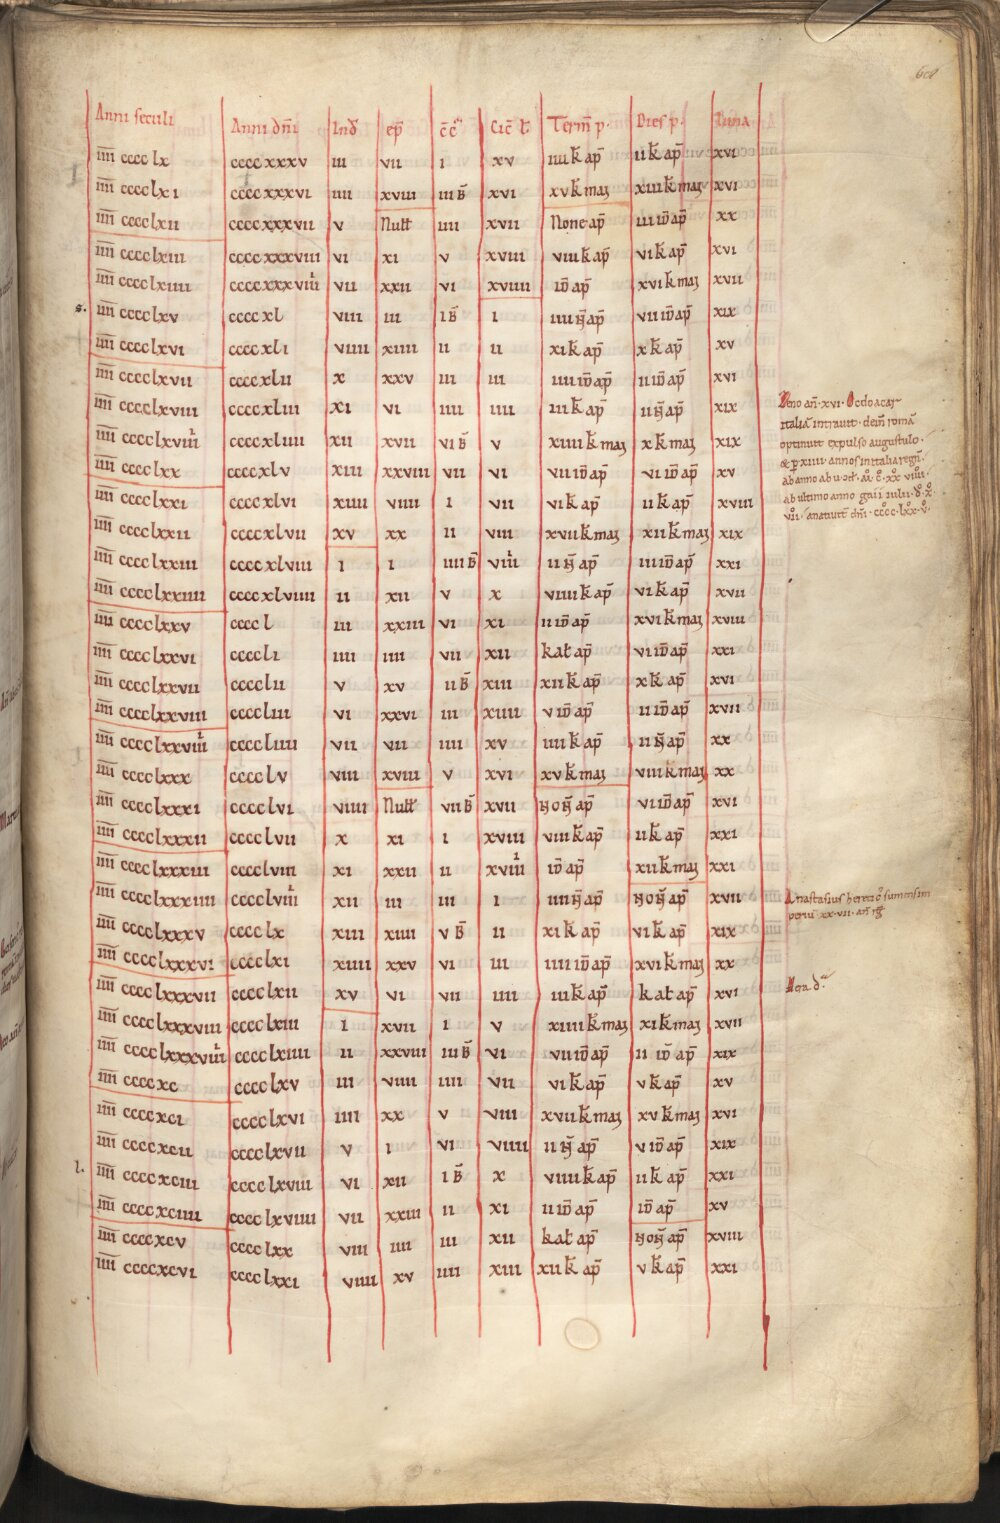 Anni seculi Anni dn̄i Ind̄ ep̄ c̄c̄ Cic̄ ł Term̄ p· Dies p· Luna
īīīī cccc lx cccc xxxv iii vii i xv iiii k̄ ap̄ ii k̄ ap̄ xvi
īīīī cccc lxi cccc xxxvi iiii xviii iii b̄ xvi xv k̄ maȝ xiii k̄ maȝ xvi
īīīī cccc lxii cccc xxxvii v Null iiii xvii None ap̄ iii id̄ ap̄ xx
īīīī cccc lxiii cccc xxxviii vi xi v xviii viii k̄ ap̄ vi k̄ ap̄ xvi
īīīī cccc lxiiii cccc xxxviiii vii xxii vi xviiii id̄ ap̄ xvi k̄ maȝ xvii
s. īīīī cccc lxv cccc xl viii iii i b̄ i iiii n̄ ap̄ vii id̄ ap̄ xix
īīīī cccc lxvi cccc xli viiii xiiii ii ii xi k̄ ap̄ x k̄ ap̄ xv
īīīī cccc lxvii cccc xlii x xxv iii iii iiii id̄ ap̄ ii id̄ ap̄ xvi
īīīī cccc lxviii cccc xliii xi vi iiii iiii iii k̄ ap̄ ii n̄ ap̄ xix
īīīī cccc lxviiii cccc xliiii xii xvii vi b̄ v xiiii k̄ maȝ x k̄ maȝ xix
īīīī cccc lxx cccc xlv xiii xxviii vii vi vii id̄ ap̄ vi id̄ ap̄ xv
īīīī cccc lxxi cccc xlvi xiiii viiii i vii vi k̄ ap̄ ii k̄ ap̄ xviii
īīīī cccc lxxii cccc xlvii xv xx ii viii xvii k̄ maȝ xii k̄ maȝ xix
īīīī cccc lxxiii cccc xlviii i i iiii b̄ viiii ii n̄ ap̄ iii id̄ ap̄ xxi
īīīī cccc lxxiiii cccc xlviiii ii xii v x viiii k̄ ap̄ vi k̄ ap̄ xvii
īīīī cccc lxxv cccc l iii xxiii vi xi ii id̄ ap̄ xvi k̄ maȝ xviii
īīīī cccc lxxvi cccc li iiii iiii vii xii kał ap̄ vi id̄ ap̄ xxi
īīīī cccc lxxvii cccc lii v xv ii b̄ xiii xii k̄ ap̄ x k̄ ap̄ xvi
īīīī cccc lxxviii cccc liii vi xxvi iii xiiii v id̄ ap̄ ii id̄ ap̄ xvii
īīīī cccc lxxviiii cccc liiii vii vii iiii xv iiii k̄ ap̄ ii n̄ ap̄ xx
īīīī cccc lxxx cccc lv viii xviii v xvi xv k̄ maȝ viii k̄ maȝ xx
īīīī cccc lxxxi cccc lvi viiii Null vii b̄ xvii non̄ ap̄ vi id̄ ap̄ xvi
īīīī cccc lxxxii cccc lvii x xi i xviii viii k̄ ap̄ ii k̄ ap̄ xxi
īīīī cccc lxxxiii cccc lviii xi xxii ii xviiii id̄ ap̄ xii k̄ maȝ xxi
īīīī cccc lxxxiiii cccc lviiii xii iii iii i iiii n̄ ap̄ non̄ ap̄ xvii
īīīī cccc lxxxv cccc lx xiii xiiii v b̄ ii xi k̄ ap̄ vi k̄ ap̄ xix
īīīī cccc lxxxvi cccc lxi xiiii xxv vi iii iiii id̄ ap̄ xvi k̄ maȝ xx
īīīī cccc lxxxvii cccc lxii xv vi vii iiii iii k̄ ap̄ kał ap̄ xvi
īīīī cccc lxxxviii cccc lxiii i xvii i v xiiii k̄ maȝ xi k̄ maȝ xvii
īīīī cccc lxxxviiii cccc lxiiii ii xxviii iii b̄ vi vii id̄ ap̄ ii id̄ ap̄ xix
īīīī cccc xc cccc lxv iii viiii iiii vii vi k̄ ap̄ v k̄ ap̄ xv
īīīī cccc xci cccc lxvi iiii xx v viii xvii k̄ maȝ xv k̄ maȝ xvi
īīīī cccc xcii cccc lxvii v i vi viiii ii n̄ ap̄ v id̄ ap̄ xix
l. īīīī cccc xciii cccc lxviii vi xii i b̄ x viiii k̄ ap̄ ii k̄ ap̄ xxi
īīīī cccc xciiii cccc lxviiii vii xxiii ii xi ii id̄ ap̄ id̄ ap̄ xv
īīīī cccc xcv cccc lxx viii iiii iii xii kał ap̄ non̄ ap̄ xviii
īīīī cccc xcvi cccc lxxi viiii xv iiii xiii xii k̄ ap̄ v k̄ ap̄ xxi
Zeno an̄· xvi· Ocdoacar
italiā intravit· dein̄ romā
optinuit expulso augustulo·
& p̄ xiiii· annos in italia regn̄·
ab ultimo anno gaii iulii·
Anastasius heretic̄ summisim